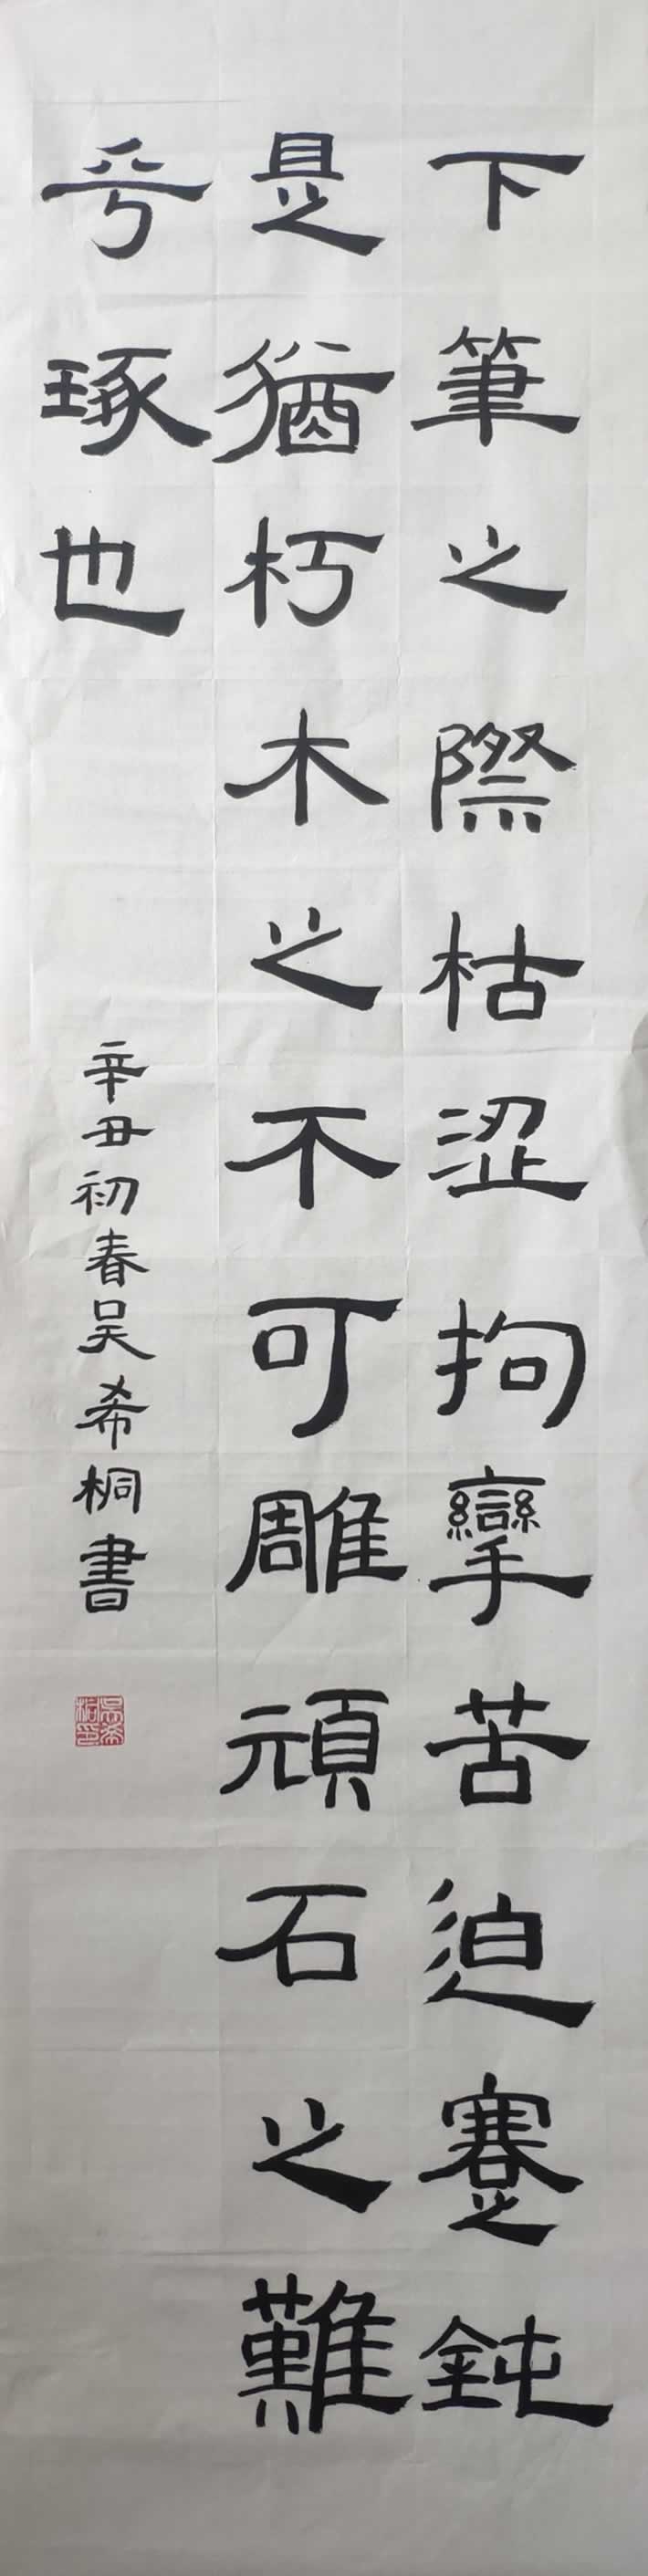 下筆之際枯涩拘攣苦迫蹇鈍
是猶朽木之不可雕頑石之難
乎琢也
辛丑初春吴希桐書
吴希桐印